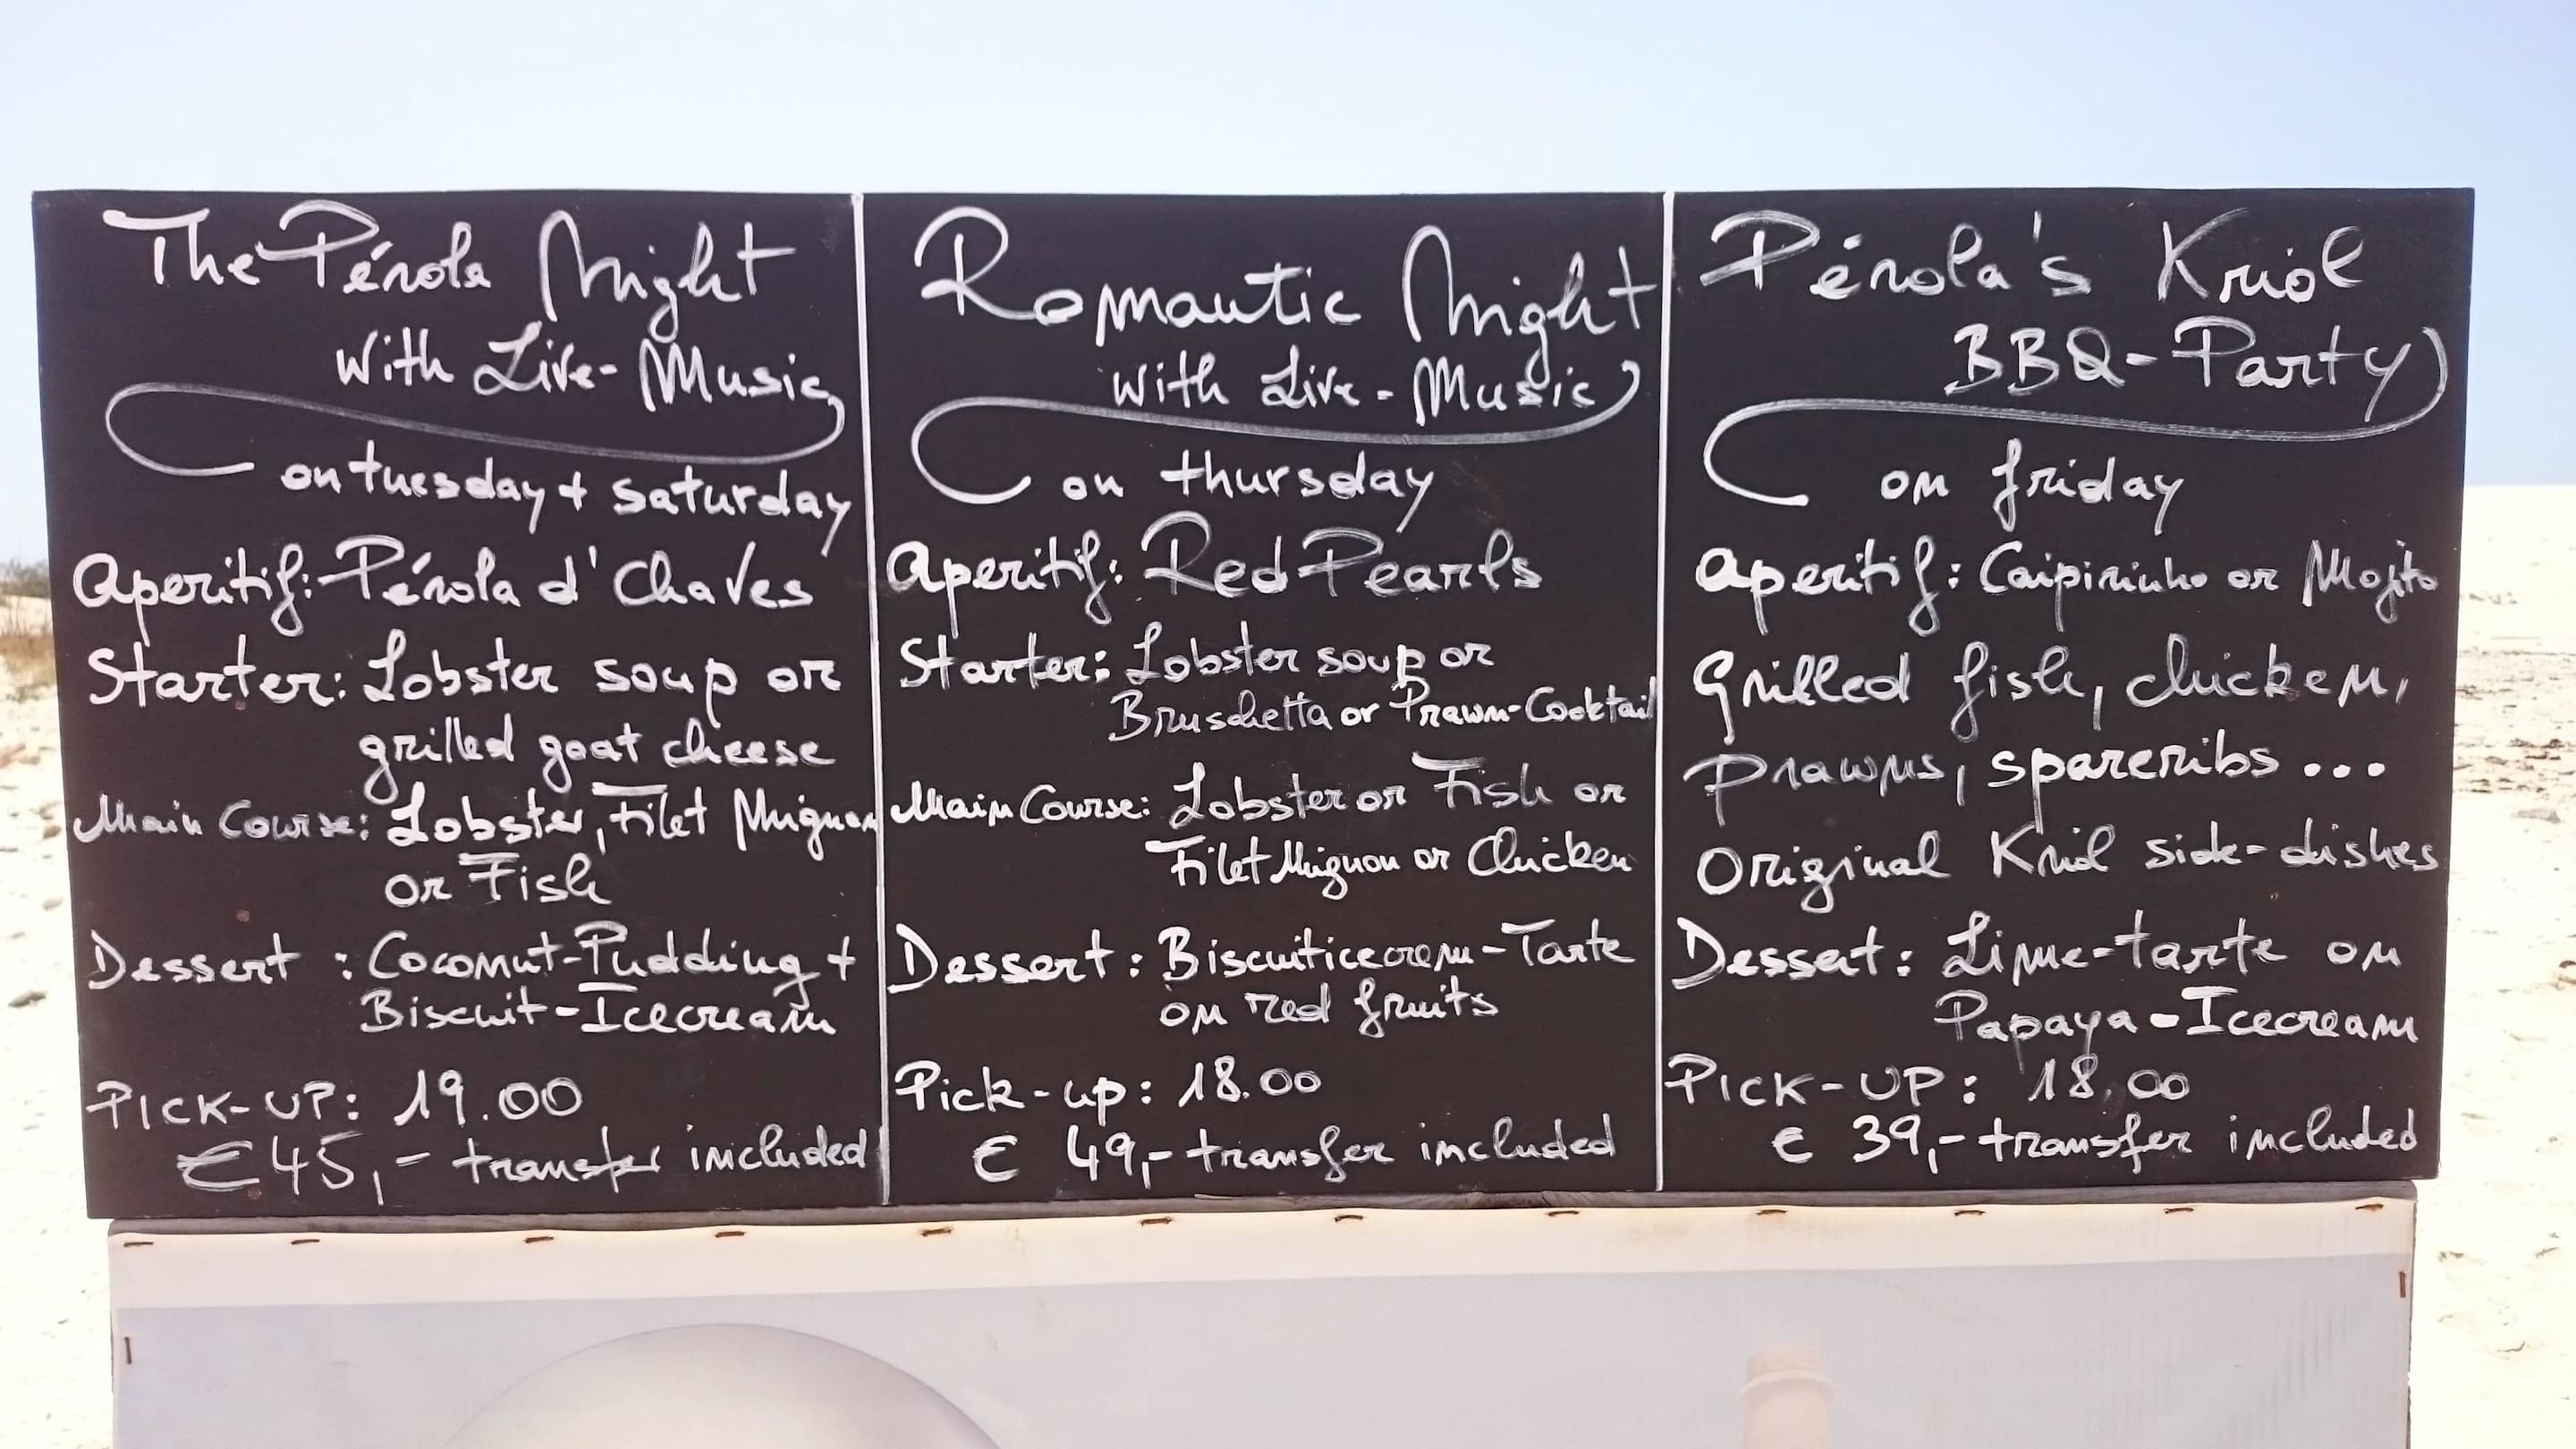 The Pérola Night
with Live-Music
on tuesday + saturday
Aperitif: Pérola d'Chaves
Starter: Lobster soup or
grilled goat cheese
Main Course: Lobster, Filet Mignon
or Fish
Dessert : Coconut-Pudding +
Biscuit-Icecream
PICK-UP: 19.00
€ 45,- transfer included
Romantic Night
with Live-Music
on thursday
Aperitif: Red Pearls
Starter: Lobster soup or
Bruschetta or Prawn-Cocktail
Main Course: Lobster or Fish or
Filet Mignon or Chicken
Dessert: Biscuiticecream-Tarte
on red fruits
Pick-up: 18.00
€ 49,- transfer included
Pérola's Kriol
BBQ-Party
on friday
Aperitif: Caipirinha or Mojito
Grilled fish, chicken,
Prawns, spareribs ...
Original Kriol side-dishes
Dessert: Lime-tarte on
Papaya-Icecream
PICK-UP: 18.00
€ 39,- transfer included